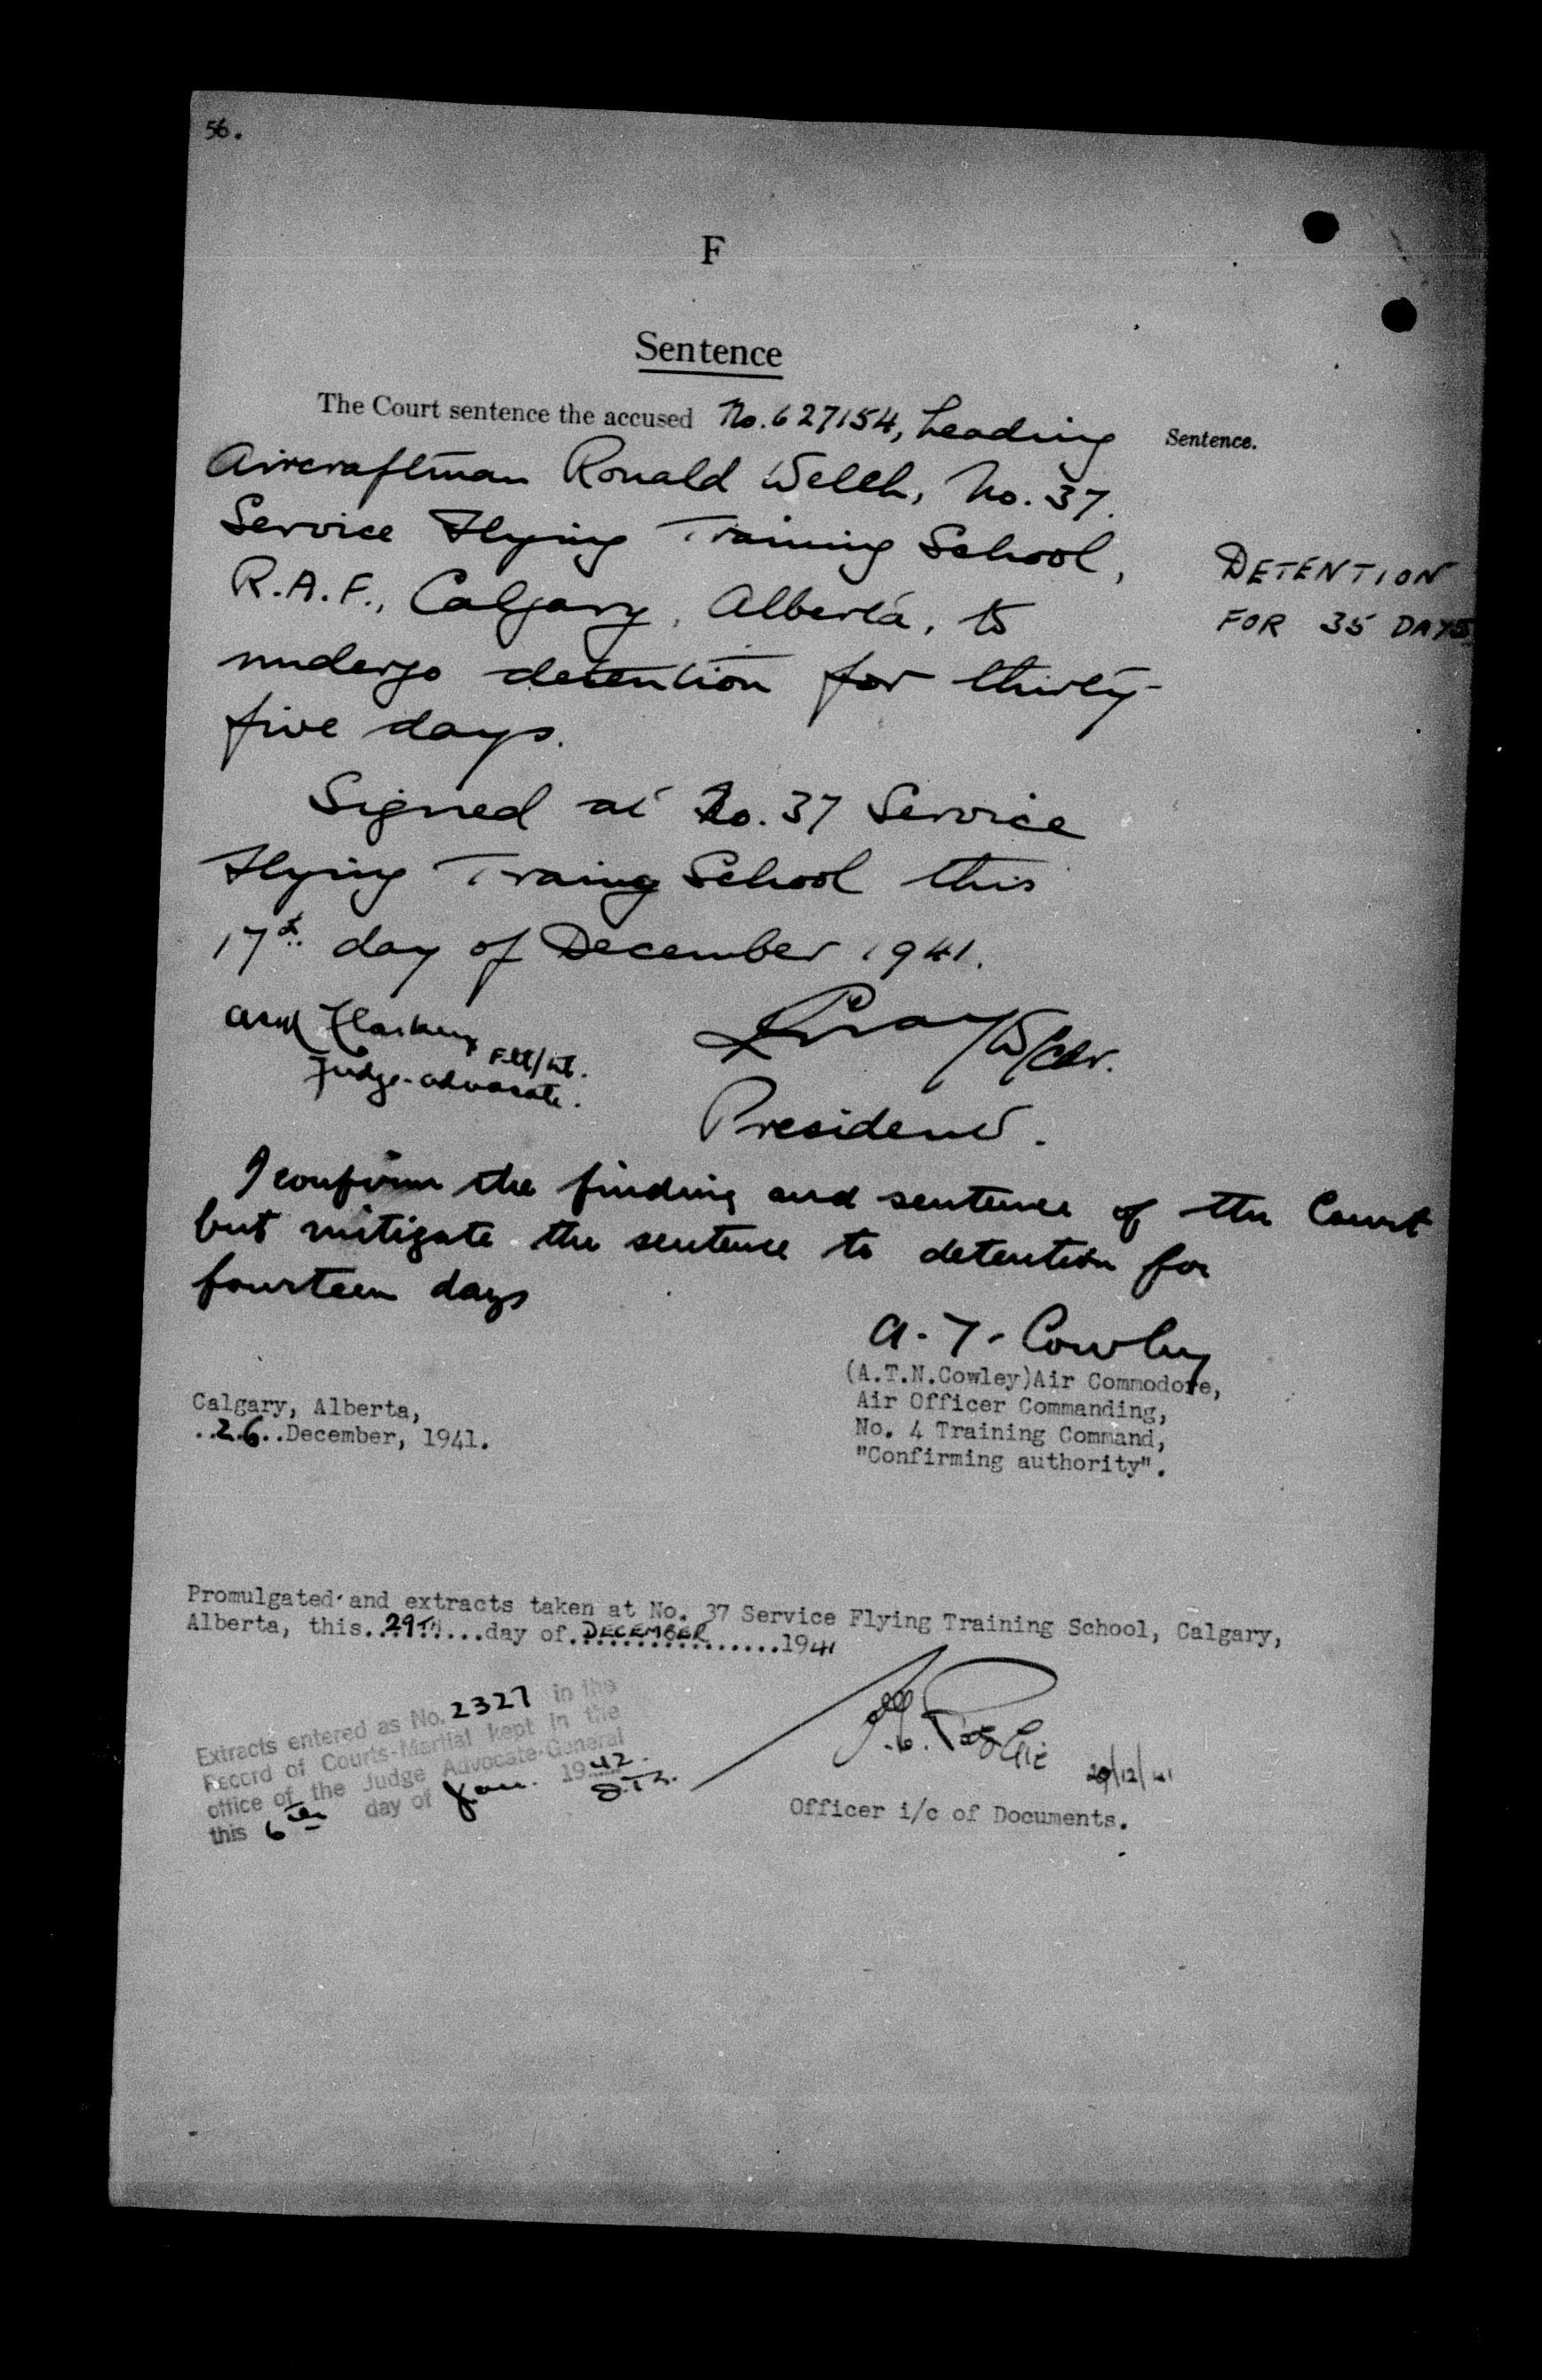 56.
F
Sentence
The Court sentence the accused No. 627154, Leading
Sentence.
Aircraftman Ronald Welch, No. 37.
Service Flying Training School,
R.A.F., Calgary, Alberta, to
undergo detention for thirty-
five days.
DETENTION
FOR 35 DAYS
Signed at No. 37 Service
Flying Traing School this
17th day of December 1941.
Flt/Lt.
Judge-advocate.
W/Cdr.
President.
I confirm the finding and sentence of the Court
but mitigate the sentence to detention for
fourteen days
A.T. Cowley
(A.T.N.Cowley)Air Commodore,
Air Officer Commanding,
No. 4 Training Command,
"Confirming authority".
Calgary, Alberta,
..26..December, 1941.
Promulgated and extracts taken at No. 37 Service Flying Training School, Calgary,
Alberta, this..29TH....day of.DECEMBER......1941
Extracts entered as No. 2327 in the
Record of Courts-Martial kept in the
office of the Judge Advocate-General
this 6th day of Jan. 1942.
29/12/41
Officer i/c of Documents.